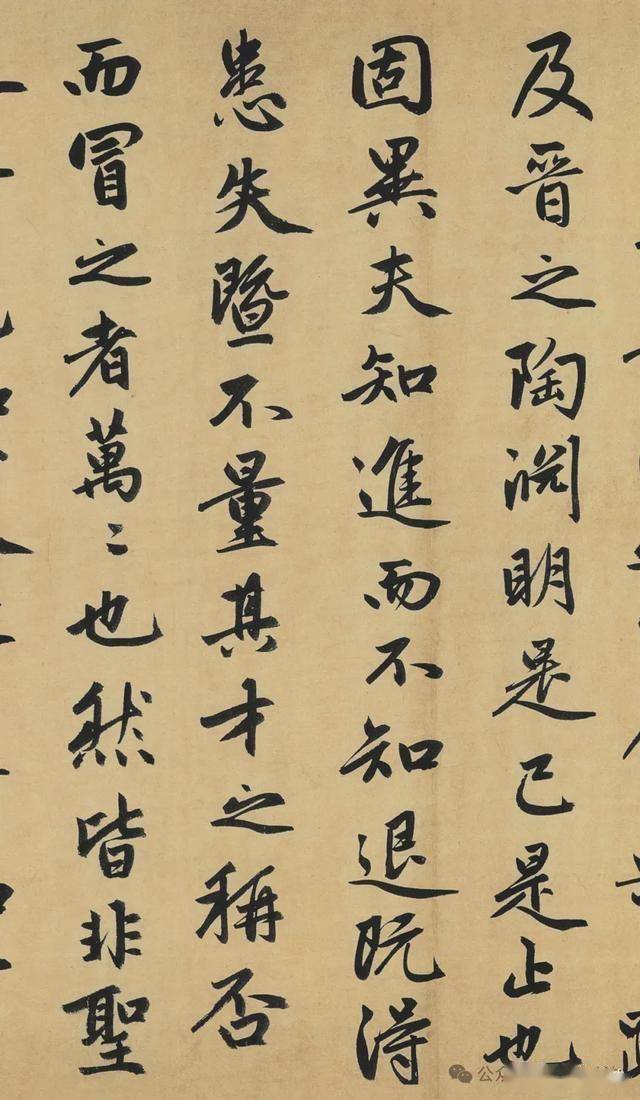 及晉之陶淵明是已是止也
固異夫知進而不知退既得
患失暨不量其才之稱否
而冒之者萬〻也然皆非聖
公众